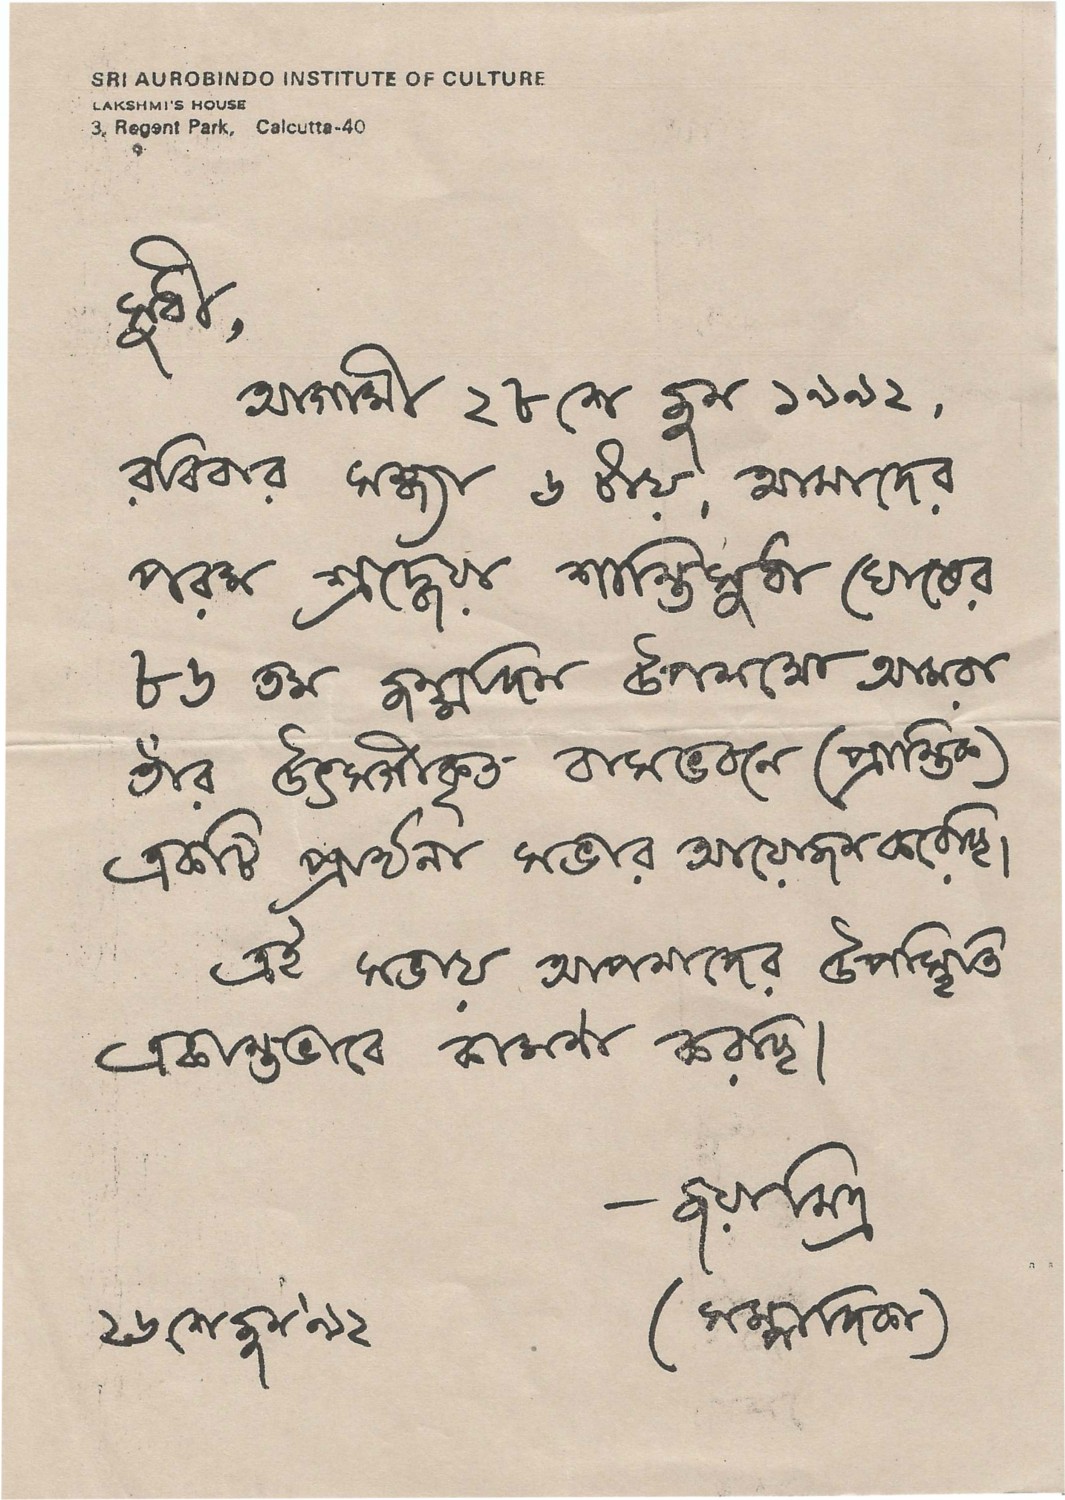 SRI AUROBINDO INSTITUTE OF CULTURE
LAKSHMI'S HOUSE
3, Regent Park, Calcutta-40
সুধী,
আগামী ২৮শে জুন ১৯৯২,
রবিবার সন্ধ্যা ৬ টায়, আমাদের
পরম শ্রদ্ধেয়া শান্তিসুধা ঘোষের
৮৬ তম জন্মদিন উপলক্ষ্যে আমরা
তাঁর উৎসর্গীকৃত বাসভবনে (প্রান্তিক)
একটি প্রার্থনা সভার আয়োজন করেছি।
এই সভায় আপনাদের উপস্থিতি
একান্তভাবে কামনা করছি।
— জয়া মিত্র
(সম্পাদিকা)
২৬শে জুন '৯২